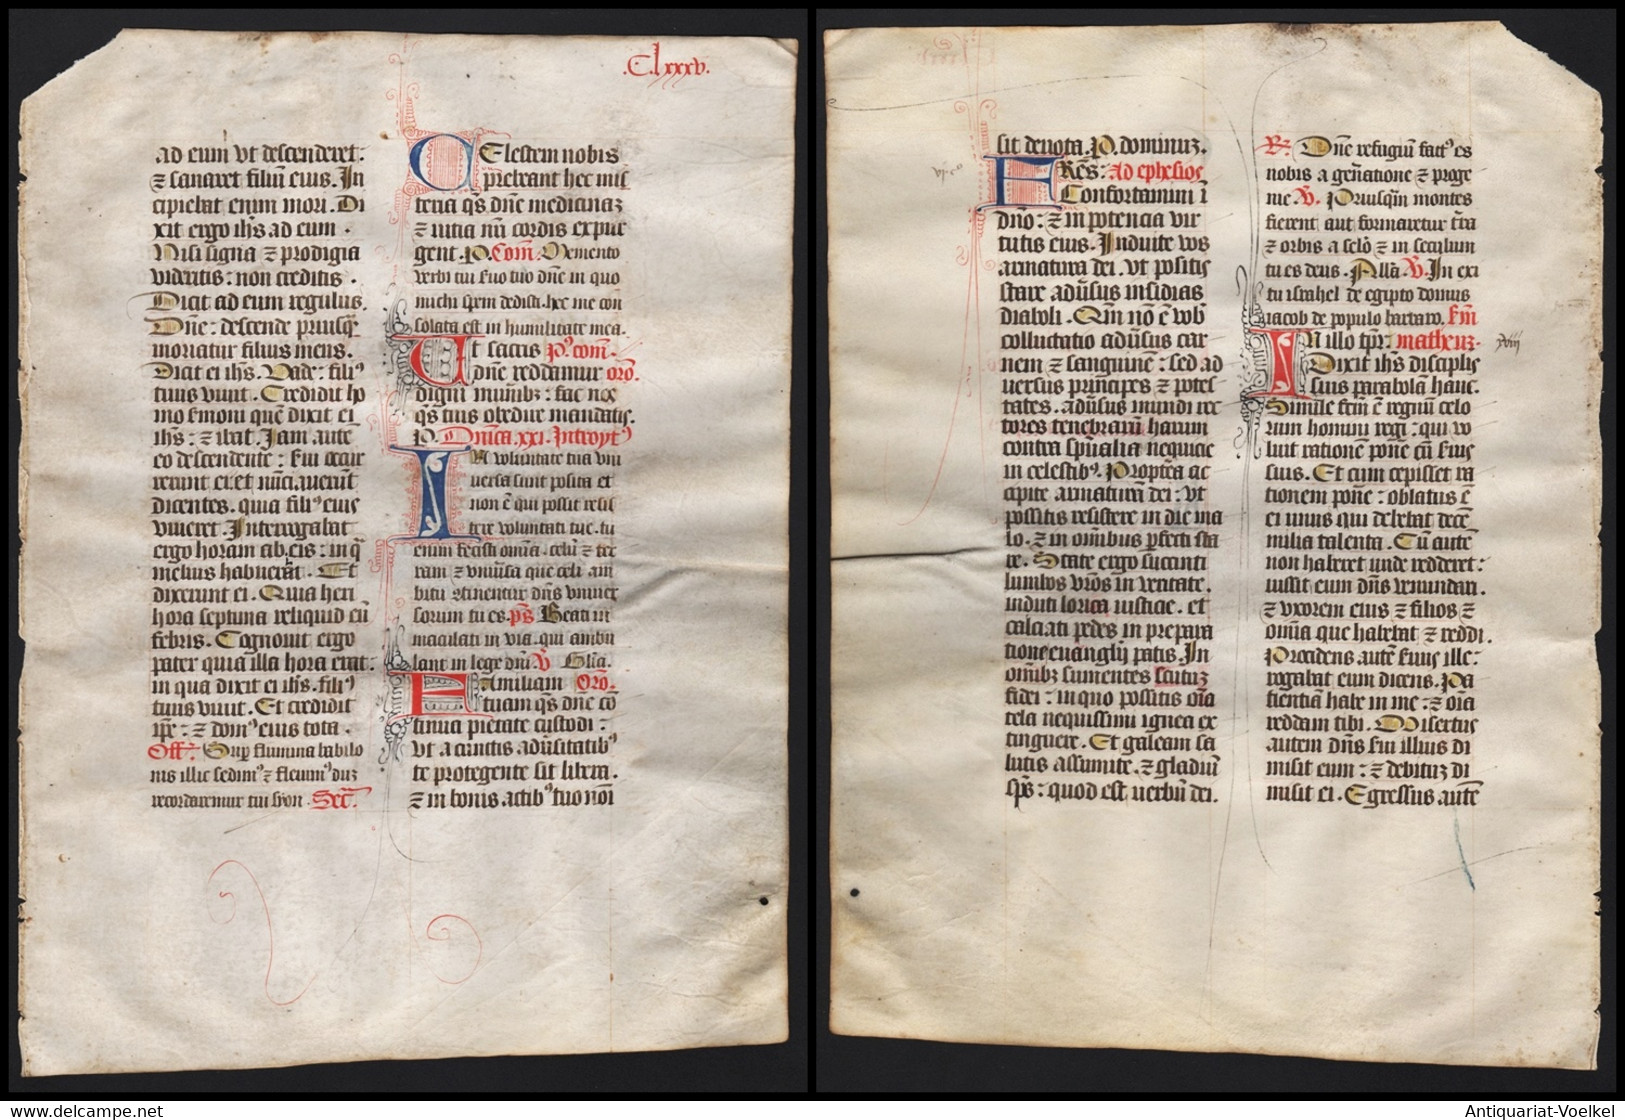 .Clxxxv.
ad eum vt descenderet:
⁊ sanaret filiū eius. In
cipiebat enim mori. Di
xit ergo ih̄s ad eum.
Nisi signa ⁊ prodigia
videritis: non creditis.
Dicit ad eum regulus.
Dn̄e: descende priusq̄
moriatur filius meus.
Dicit ei ih̄s. Vade: fili⁹
tuus viuit. Credidit ho
mo sermoni quē dixit ei
ih̄s: ⁊ ibat. Iam autē
eo descendente: serui occur
rerunt ei et nūciauerūt
dicentes. quia fili⁹ eius
viueret. Interrogabat
ergo horam ab eis: in q̄
melius habuerat. Et
dixerunt ei. Quia heri
hora septima reliquid eū
febris. Cognouit ergo
pater quia illa hora erat:
in qua dixit ei ih̄s. fili⁹
tuus viuit. Et credidit
ip̄e: ⁊ dom⁹ eius tota.
Off. Sup flumina babilo
nis illic sedim⁹ ⁊ fleuim⁹ duꝫ
recordaremur tui syon. Sec̄.
Celestem nobis
prebeant hec mis
teria q̄s dn̄e medicinaꝫ
⁊ uitia nr̄i cordis expur
gent. P. Com̄. Memento
verbi tui seruo tuo dn̄e in quo
michi spem dedisti. hec me con
solata est in humilitate mea.
Ut sacris p⁹com̄.
dn̄e reddamur oro.
digni munib⁹: fac nos
q̄s tuis obedire mandatis.
P. Dn̄ica .xxi. Introyt⁹
In voluntate tua vni
uersa sunt posita et
non ē qui possit resis
tere voluntati tue. tu
enim fecisti om̄ia. celū ⁊ ter
ram ⁊ vniūsa que celi am
bitu tinentur dn̄s vniuer
sorum tu es. p̄s Beati in
maculati in via. qui ambu
lant in lege dn̄i. V̄ Gl̄ia.
Familiam Oro.
tuam q̄s dn̄e cō
tinua pietate custodi:
vt a cunctis adūsitatib⁹
te protegente sit libera.
⁊ in bonis actib⁹ tuo noī
sit deuota. P. dominuꝫ.
Fres: Ad ephesios
Confortamini ī
dn̄o: ⁊ in potencia vir
tutis eius. Induite vos
armatura dei. vt positis
stare adūsus insidias
diaboli. Qm̄ nō ē vob
colluctatio adūsus car
nem ⁊ sanguinē: sed ad
versus principes ⁊ potes
tates. adūsus mundi rec
tores tenebrarū harum
contra spūalia nequicie
in celestib⁹. Proptea ac
cipite armaturā dei: vt
possitis resistere in die ma
lo. ⁊ in om̄ibus pfecti sta
re. State ergo succinti
lumbos vr̄os in veritate.
induti lorica iusticie. et
calciati pedes in prepara
tione euanglij pacis. In
om̄ibꝫ sumentes scutuꝫ
fidei: in quo possitis om̄ia
tela nequissimi ignea ex
tinguere. Et galeam sa
lutis assumite. ⁊ gladiū
sp̄s: quod est uerbū dei.
R. Dn̄e refugiū fact⁹ es
nobis a gn̄atione ⁊ proge
nie V̄. Priusq̄m montes
fierent aut formaretur t̄ra
⁊ orbis a sclo ⁊ in seculum
tu es deus. Alla V̄. In exi
tu israhel de egipto domus
iacob de populo barbaro. Sm̄
In illo tpr: matheuꝫ.
xviii
Dixit ih̄s disciplis
suis parabolam hanc.
Simile factm ē regnū celo
rum homini regi: qui vo
luit rationē ponē cū suis
suis. Et cum cepisset ra
tionem ponē: oblatus ē
ei unus qui debebat decē
milia talenta. Cū autē
non haberet unde redderet:
iussit eum dn̄s venundari.
⁊ vxorem eius ⁊ filios ⁊
om̄ia que habebat ⁊ reddi.
Procidens autē suus ille:
rogabat eum dicens. Pa
tientiā habe in me: ⁊ om̄ia
reddam tibi. Misertus
autem dn̄s sui illius di
misit eum: ⁊ debituꝫ di
misit ei. Egressus autē
Antiquariat-Voelkel